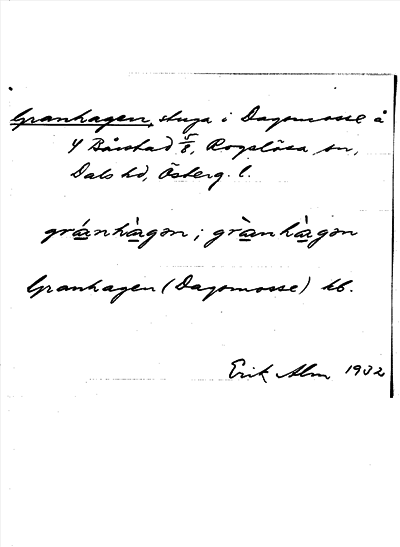 Granhagen, stuga i Dagsmosse å
4 Bårstad 5/8, Rogslösa sn,
Dals hd, Österg. l.
gránhàgən; grànhàgən
Granhagen (Dagsmosse) kb.
Erik Alm 1932